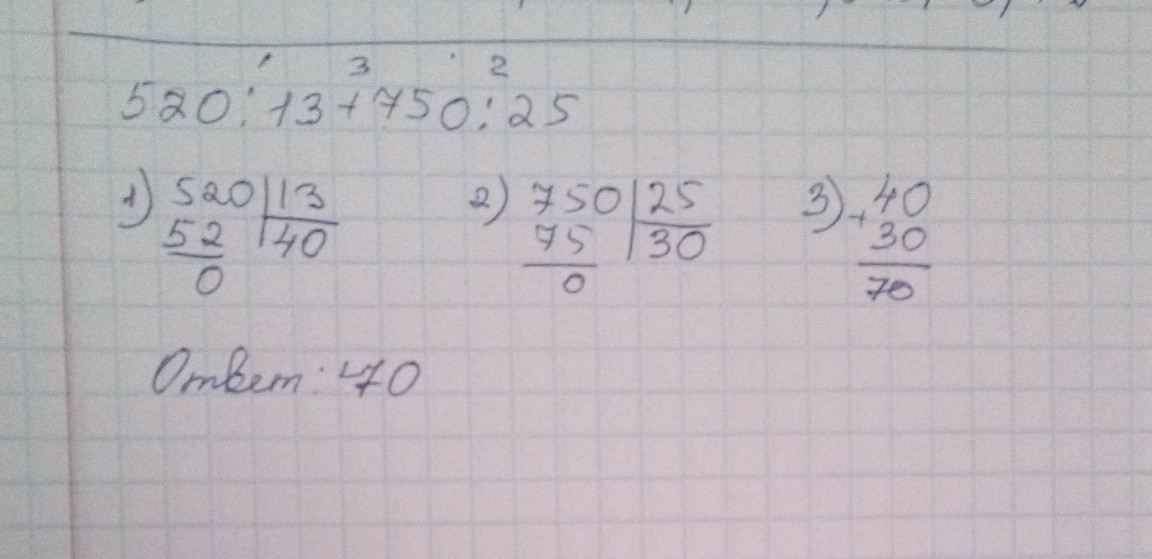 1 3 2
520:13+750:25
1) 520|13 2) 750|25 3) +40
52 |40 75 |30 30
0 0 70
Ответ: 70